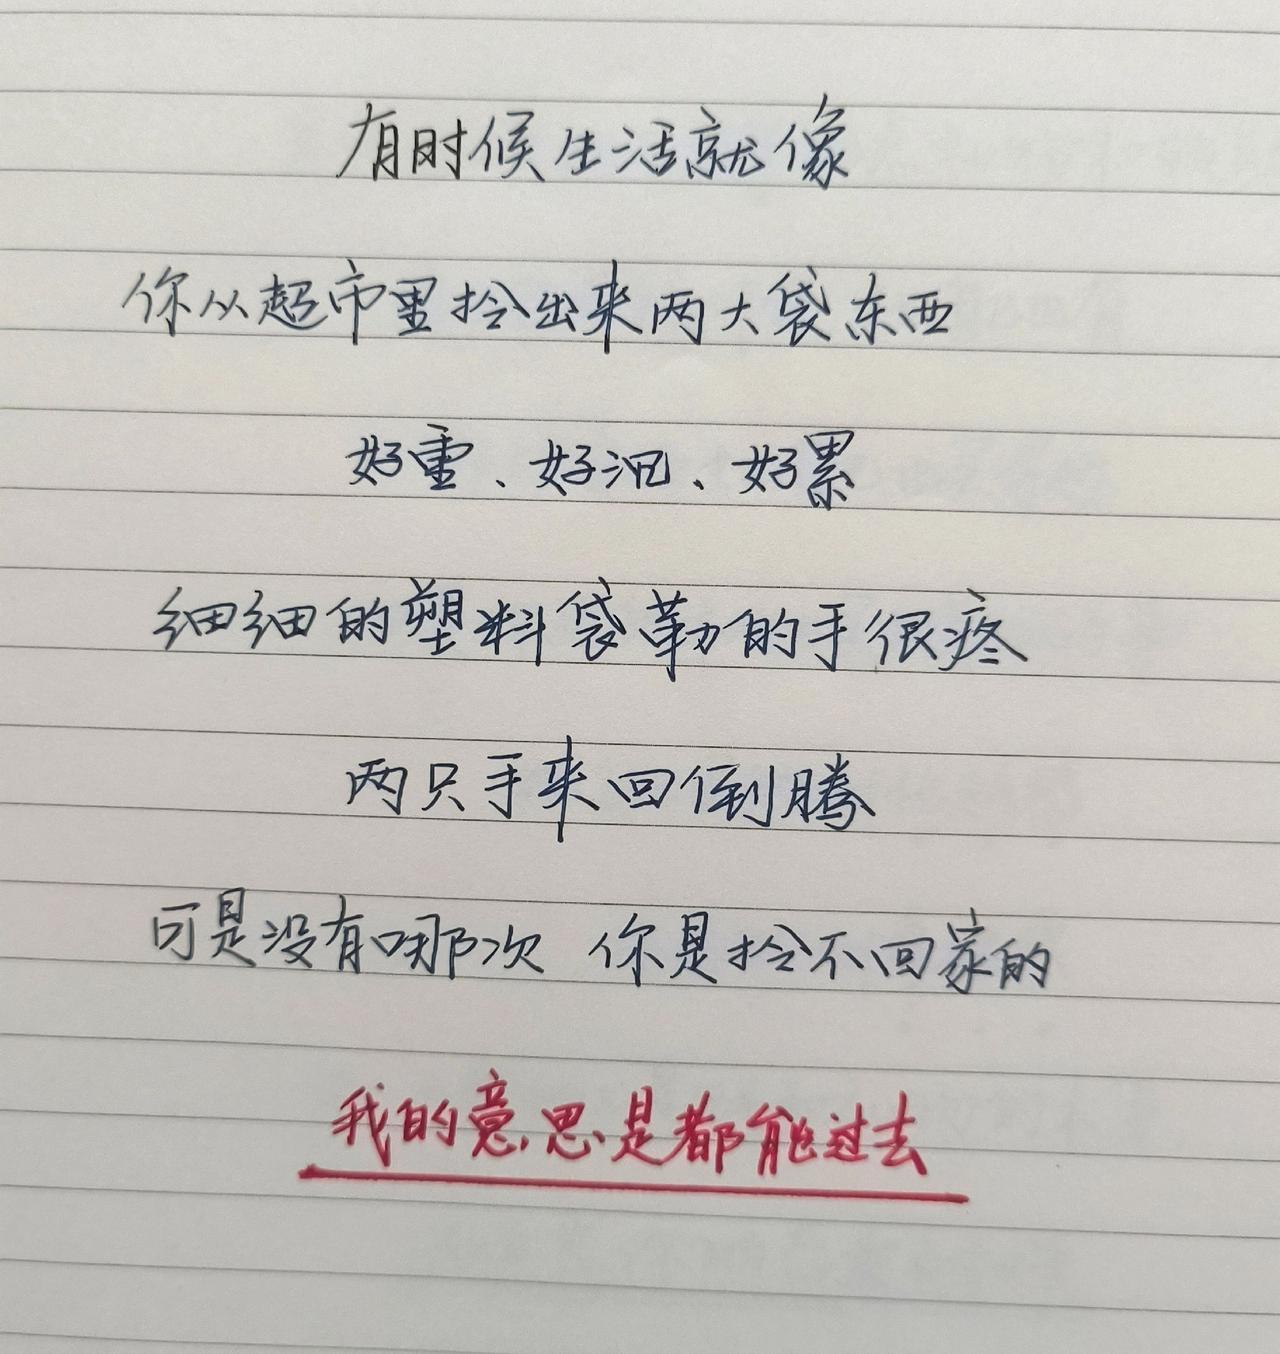 有时候生活就像
你从超市里拎出来两大袋东西
好重、好沉、好累
细细的塑料袋勒的手很疼
两只手来回倒腾
可是没有哪次 你是拎不回家的
我的意思是都能过去